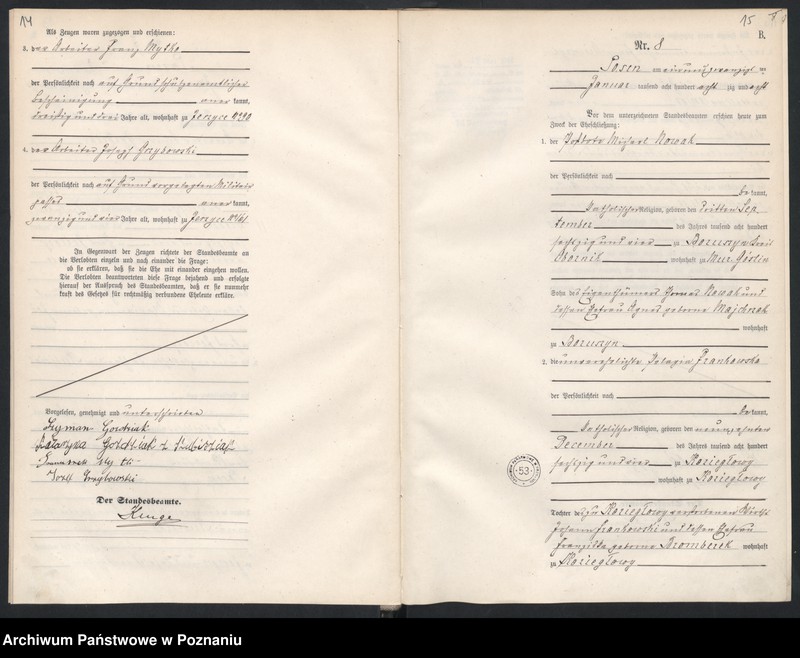 14
Als Zeugen waren zugezogen und erschienen:
3. der Arbeiter Franz Mytko
der Persönlichkeit nach auf Grund schutzamtlicher
Bescheinigung aner kannt,
dreißig und drei Jahre alt, wohnhaft zu Jerzyce
4. der Arbeiter Joseph Grzybowski
der Persönlichkeit nach auf Grund vorgelegten Militair
passes aner kannt,
zwanzig und vier Jahre alt, wohnhaft zu Jerzyce
In Gegenwart der Zeugen richtete der Standesbeamte an
die Verlobten einzeln und nach einander die Frage:
ob sie erklären, daß sie die Ehe mit einander eingehen wollen.
Die Verlobten beantworteten diese Frage bejahend und erfolgte
hierauf der Ausspruch des Standesbeamten, daß er sie nunmehr
kraft des Gesetzes für rechtmäßig verbundene Eheleute erkläre.
Vorgelesen, genehmigt und unterschrieben
Szyman
Katarzyna
Józef Grzybowski
Der Standesbeamte.
15
B.
Nr. 8
Posen am einundzwanzigsten
Januar tausend acht hundert acht zig und acht
Vor dem unterzeichneten Standesbeamten erschien heute zum
Zweck der Eheschließung:
1. der Postbote Michael Nowak
der Persönlichkeit nach
be kannt,
katholischer Religion, geboren den dritten Sep
tember des Jahres tausend acht hundert
sechzig und vier zu Boruszyn Kreis
Obornik wohnhaft zu Mur. Goslin
Sohn des Eigenthümers Nowak und
dessen Ehefrau Agnes geborne Majchrzak
wohnhaft
zu Boruszyn
2. die unverehelichte Pelagia Frankowska
der Persönlichkeit nach
be kannt,
katholischer Religion, geboren den neunzehnten
December des Jahres tausend acht hundert
sechzig und vier zu Koziegłowy
wohnhaft zu Koziegłowy
Tochter des zu Koziegłowy verstorbenen Wirths
Johann Frankowski und dessen Ehefrau
Franziska geborne Bromberek wohnhaft
zu Koziegłowy
53
Archiwum Państwowe w Poznaniu